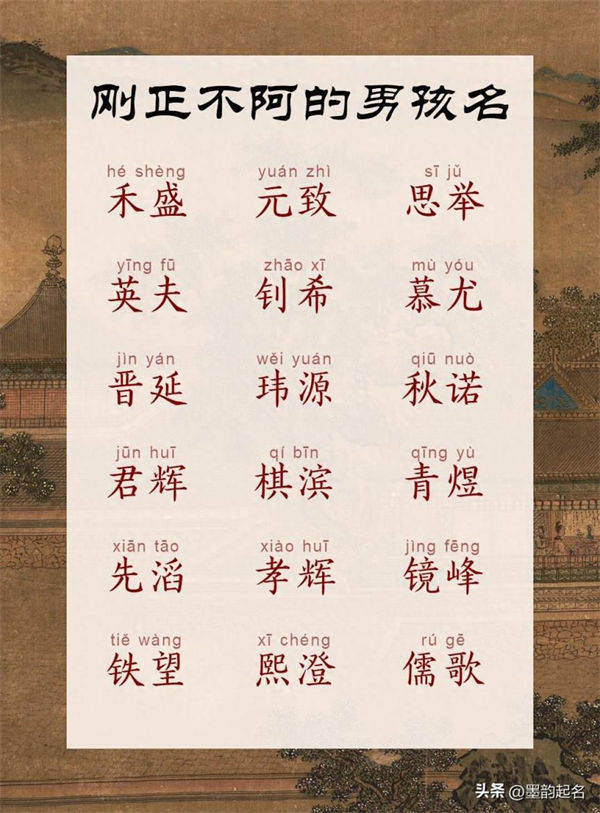 刚正不阿的男孩名
hé shèng yuán zhì sī jǔ
禾盛 元致 思举
yīng fū zhāo xī mù yóu
英夫 钊希 慕尤
jìn yán wěi yuán qiū nuò
晋延 玮源 秋诺
jūn huī qí bīn qīng yù
君辉 棋滨 青煜
xiān tāo xiào huī jìng fēng
先滔 孝辉 镜峰
tiě wàng xī chéng rú gē
铁望 熙澄 儒歌
头条 @墨韵起名